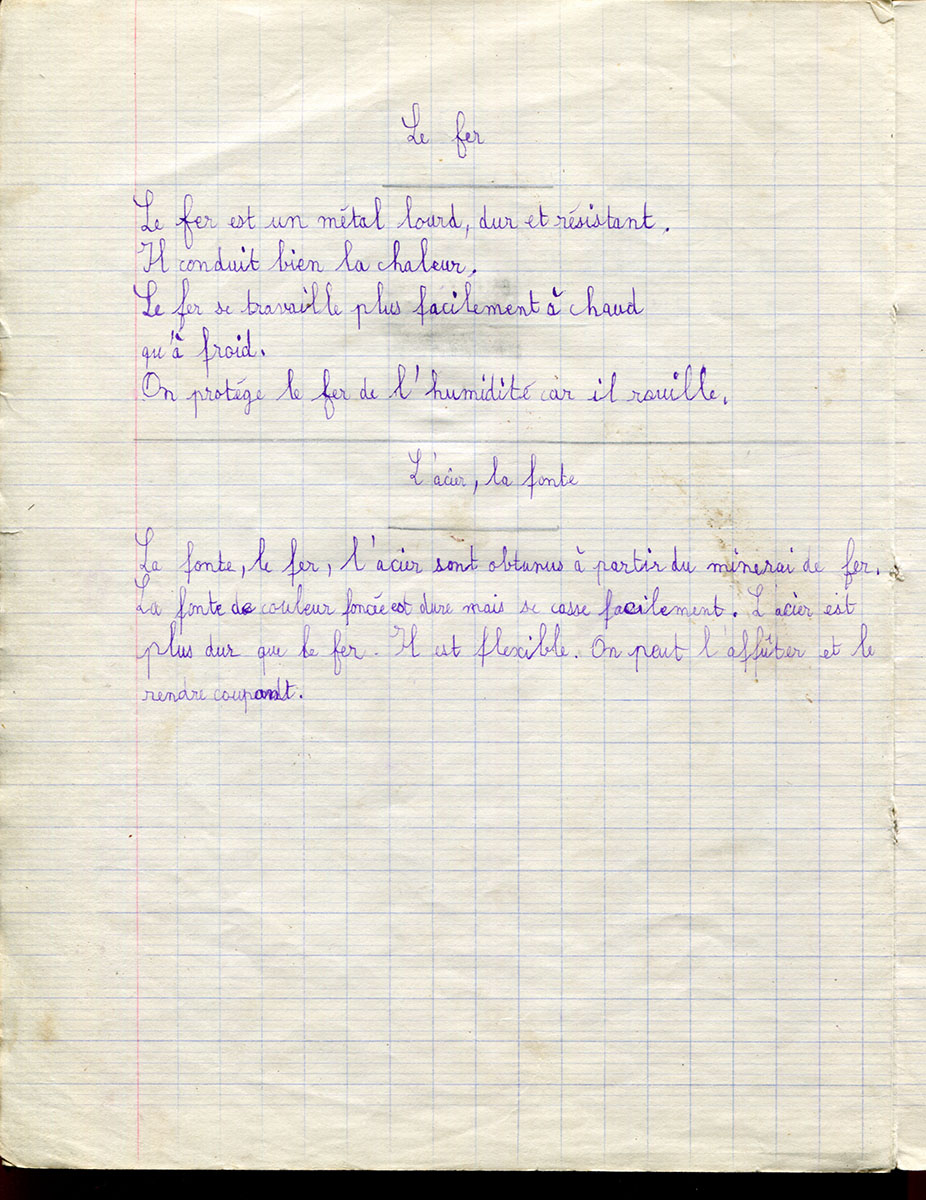 Le fer
Le fer est un métal lourd, dur et résistant.
Il conduit bien la chaleur.
Le fer se travaille plus facilement à chaud
qu'à froid.
On protège le fer de l'humidité car il rouille.
L'acier, la fonte
La fonte, le fer, l'acier sont obtunus à partir du minerai de fer.
La fonte de couleur foncée est dure mais se casse facilement. L'acier est
plus dur que le fer. Il est flexible. On peut l'affûter et le
rendre coupant.